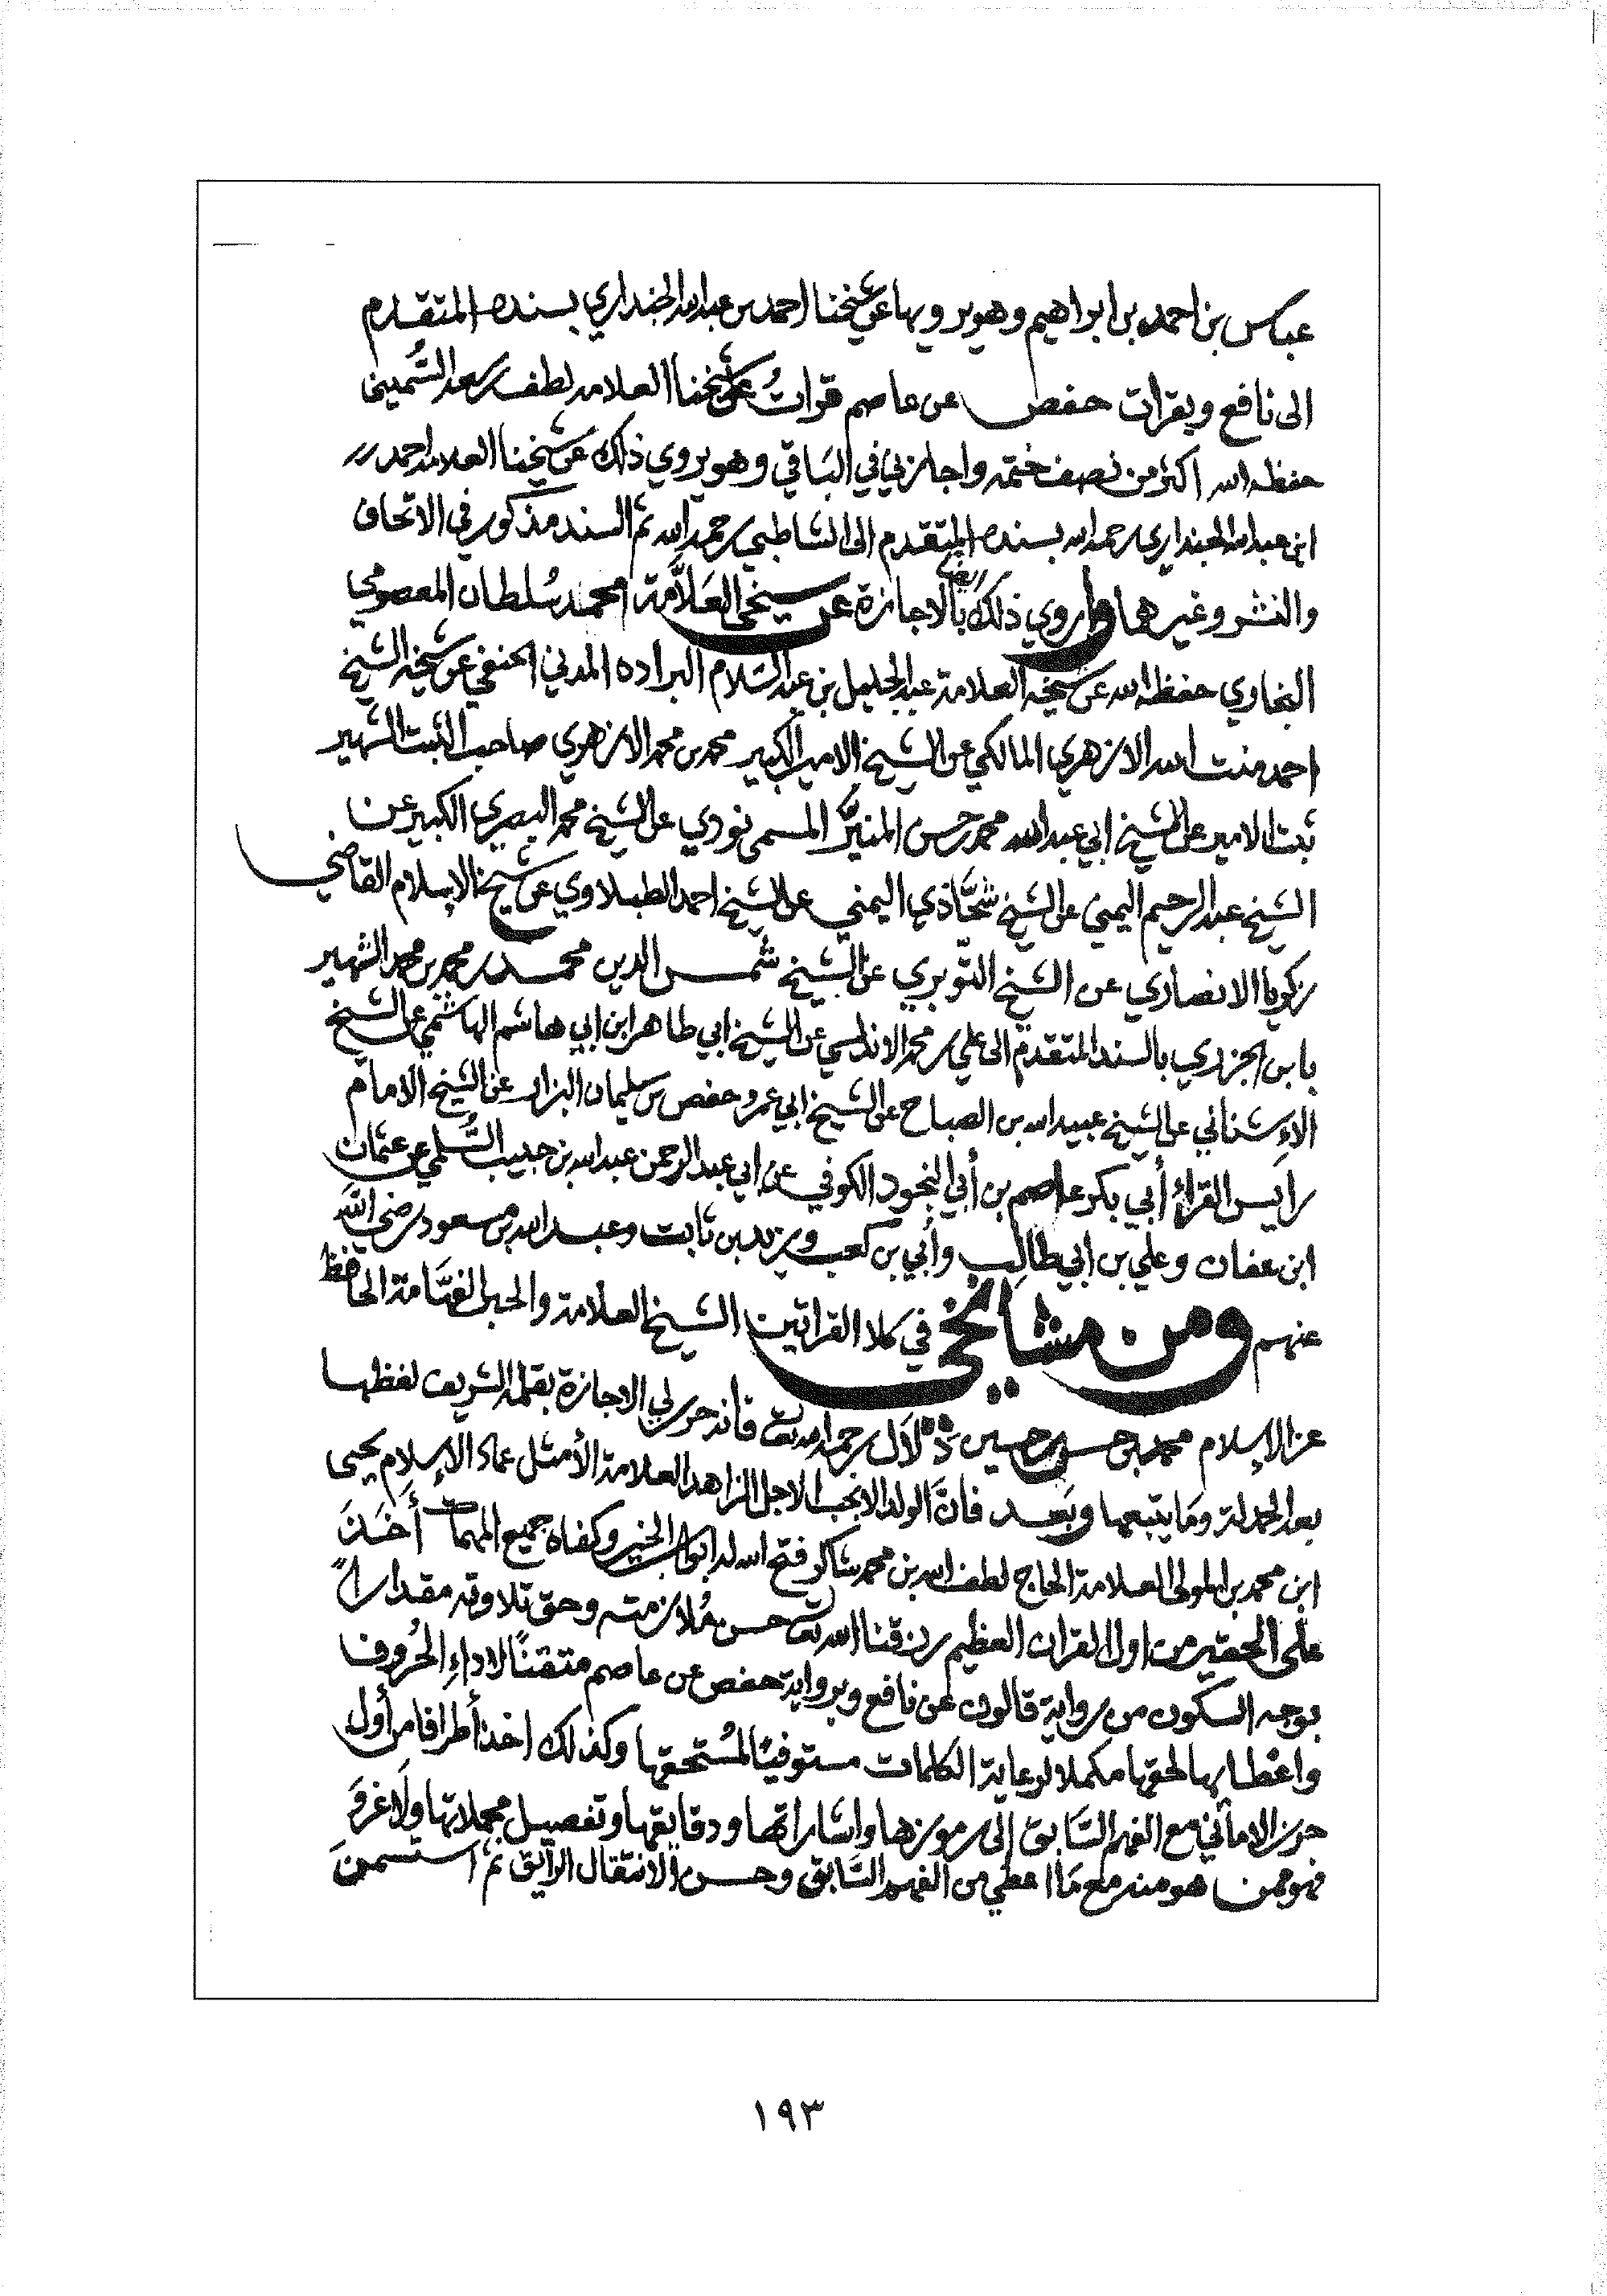 عباس بن احمد بن ابراهيم وهو يرويها عن شيخنا احمد بن عبدالله الجنداري بسنده المتقدم
الى نافع وبقرات حفص عن عاصم قرات عن شيخنا العلامه لطف بن سعد السُّميني
حفظه الله اكثر من نصف ختمه واجازني في البَاقي وهو يروي ذلك عن شيخنا العلامه احمد
ابن عبدالله الجنداري رحمه الله بسنده المتقدم الى الشاطبي رحمه الله ثم السند مذكور في الاتحاف
والنشر وغيرهما واروي ذلك ايضًا بالاجازة عن شيخي العَلاَّمة محمد سُلطان المعصومي
البخاوي حفظه الله عن شيخه العلامة عبد الجليل بن عبد السَّلام البراده المدني الحنفي عن شيخه الشيخ
احمد منت الله الازهري المالكي عن الشيخ الامير الكبير محمد بن محمد الازهري صاحب الثبت الشهير
بثبت الامير عن الشيخ ابي عبدالله محمد حسن المنيَّر المسمى نودي عن الشيخ محمد البصري الكبير عن
الشيخ عبد الرحيم اليمني عن الشيخ شحَّاذي اليمني عن الشيخ احمد الطبلاوي عن شيخ الاسلام القاضي
زكريا الانصاري عن الشيخ التّويري عن الشيخ شمس الدين محمد بن محمد بن محمد الشهير
بابن الجزري بالسند المتقدم الى علي بن محمد الاندلسي عن الشيخ ابي طاهر ابن ابي هاشم الهاشمي عن الشيخ
الاءشناني عن الشيخ عبيد الله بن الصباح عن الشيخ ابي عمرو حفص بن سليمان البزار عن الشيخ الامام
رايس القراء أبي بكر عاصم بن أبي النجود الكوفي عن ابي عبد الرحمن عبدالله بن حبيب السُّلمي عن عثمان
ابن عفان وعلي بن ابي طالب وأبي بن كعب وزيد بن ثابت وعبد الله بن مسعود رضي الله
عنهم ومن مشائخي في كلا القراتين الشيخ العلامة والحبر الفهَّامة الحافظ
عز الاسلام محمد بن حسين حسين دلاَل رحمه الله تعالى فانه حرر لي الاجازة بقلمه الشريف لفظها
بعد الحمدلة ومَا يتبعها وبَعد فانَّ الولد الانجب الاجل الزاهد العلامة الأمثل عماد الإسلام يحيى
ابن محمد بن المولى العلامة الحاج لطف الله بن محمد شاكر فتح الله له ابواب الخير وكفاه جميع المهمات أخَذَ
على الحقير من اول القران العظيم رزقنا الله تعالى حسن مُلازمته وحق تلاوته مقدارا
بوجه السكون من رواية قالون عن نافع وبرواية حفص عن عاصم متقنًا لاداءِ الحُروف
واعْطايها لحقها مكملا لرعاية الكلمات مستوفيًا لمُستحقها وكذلك اخذ أطرافا من أول
حرز الاماني مع الفهم السَّابق إلى رموزها واشاراتها ودقايقها وتفصيل مجملاتها ولا غروَ
فهو ممن هو منه مع مَا اعطي من الفهم السَّابق وحسن الانتقال الرايق ثم استسمنَ
١٩٣